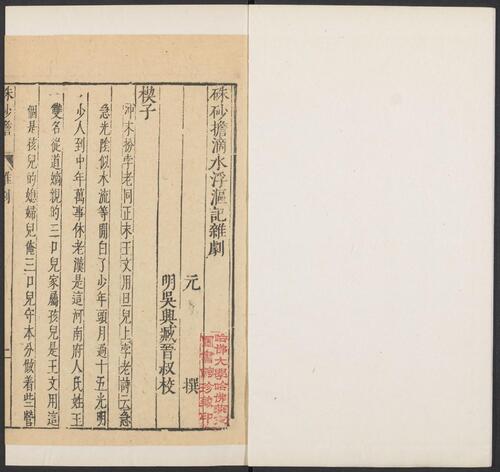 硃砂擔滴水浮漚記雜劇
元 撰
明吳興臧晉叔校
楔子
沖末扮孛老同正末王文用旦兒上孛老詩云急
急光陰似水流等閒白了少年頭月過十五光明
少人到中年萬事休老漢是這河南府人氏姓王
雙名從道嫡親的三口兒家屬孩兒是王文用這
個是孩兒的媳婦兒俺三口兒守本分做着些營
硃砂擔 雜劇 一
哈佛大學哈佛燕京
圖書館珍藏印